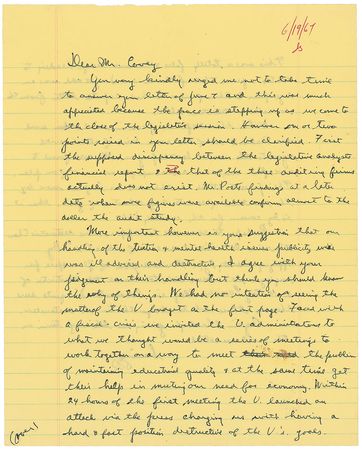 6/19/67
Dear Mr. Covey
You very kindly urged me not to take time
to answer your letter of June 7 and this was much
appreciated because the pace is stepping up as we come to
the close of the legislative session. However one or two
points raised in your letter should be clarified. First
the supposed discrepancy between the legislative analysts
financial report & that of the three auditing firms
actually does not exist. Mr. Posts findings at a later
date when more figures were available confirm almost to the
dollar the audit study.
More important however is your suggestion that our
handling of the tuition & mental health issues publicity wise
was ill advised and destructive. I agree with your
judgement on their handling but think you should know
the why of things. We had no intention of seeing the
matter of the U. budget on the front page. Faced with
a fiscal crisis we invited the U. administrators to
what we thought would be a series of meetings to
work together on a way to meet the problem
of maintaining educational quality & at the same time get
their help in meeting our need for economy. Within
24 hours of the first meeting the U. launched an
attack via the press charging us with having a
hard & fast position destructive of the U's. goals.